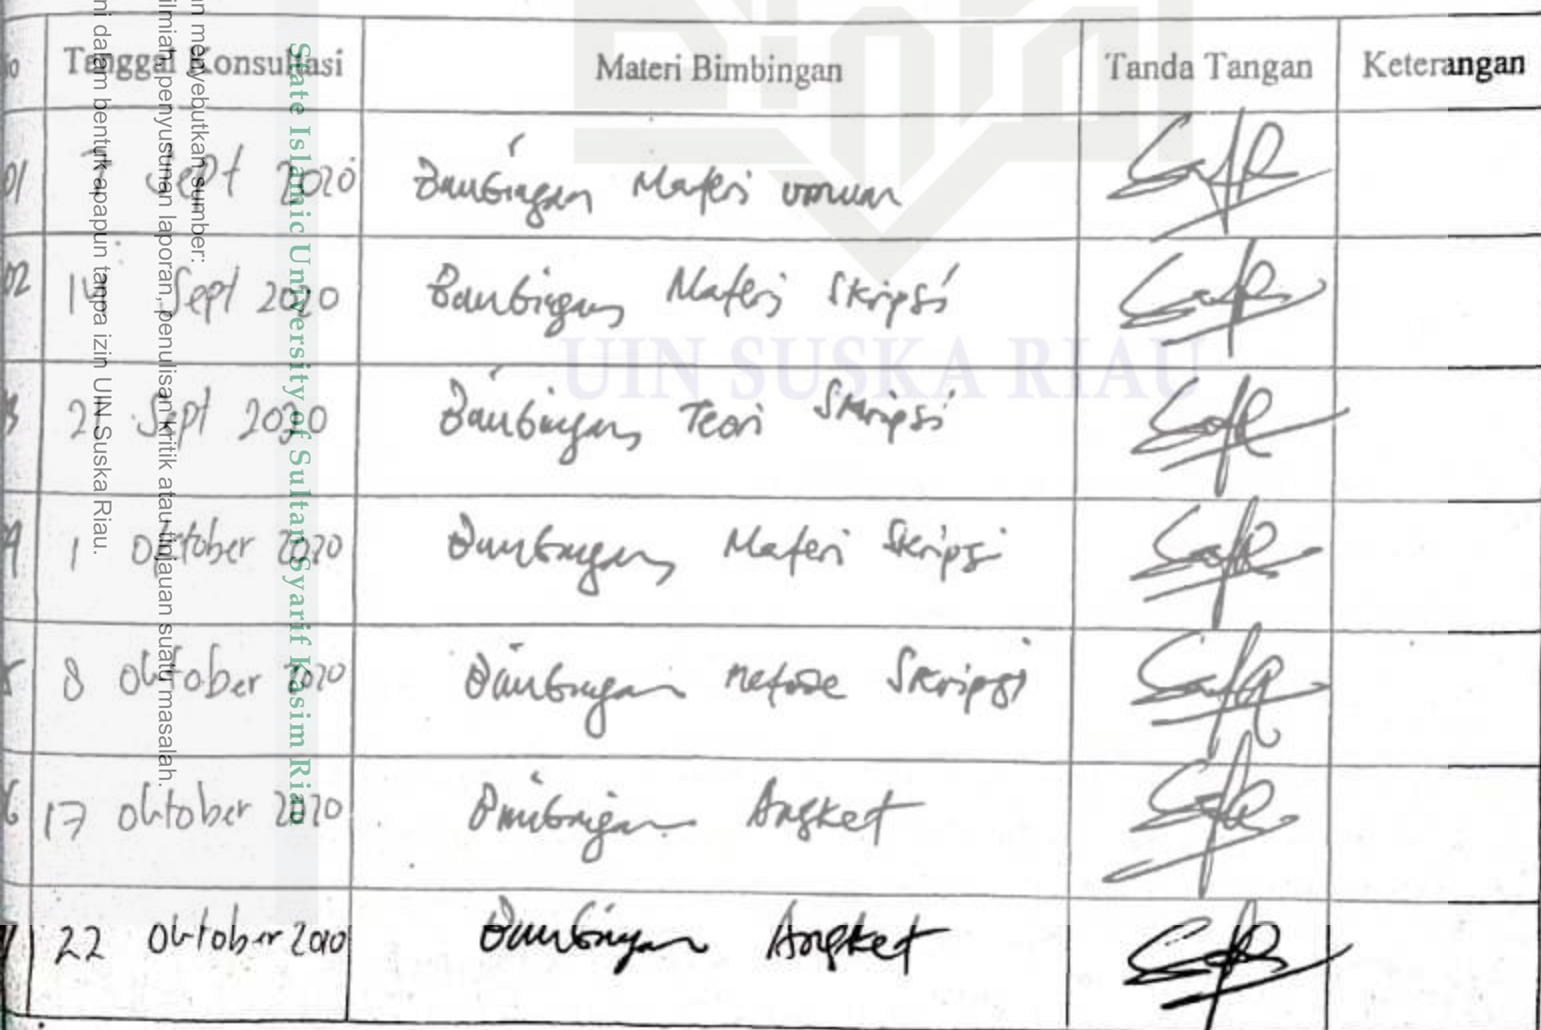 Tanggal Konsultasi Materi Bimbingan Tanda Tangan Keterangan
01 7 Sept 2020 Bimbingan Materi umum
02 14 Sept 2020 Bimbingan Materi Skripsi
3 2 Sept 2020 Bimbingan Teori Skripsi
4 1 Oktober 2020 Bimbingan Materi Skripsi
5 8 Oktober 2020 Bimbingan Metode Skripsi
6 17 Oktober 2020 Bimbingan Angket
7 22 Oktober 2020 Bimbingan Angket
UIN SUSKA RIAU
State Islamic University of Sultan Syarif Kasim Riau
n menyebutkan sumber:
ilmiah, penyusunan laporan, penulisan kritik atau tinjauan suatu masalah.
ni dalam bentuk apapun tanpa izin UIN Suska Riau.